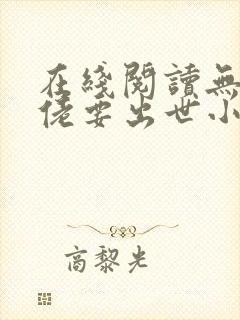 在綫閱讀無
佬要出世小
高黎光